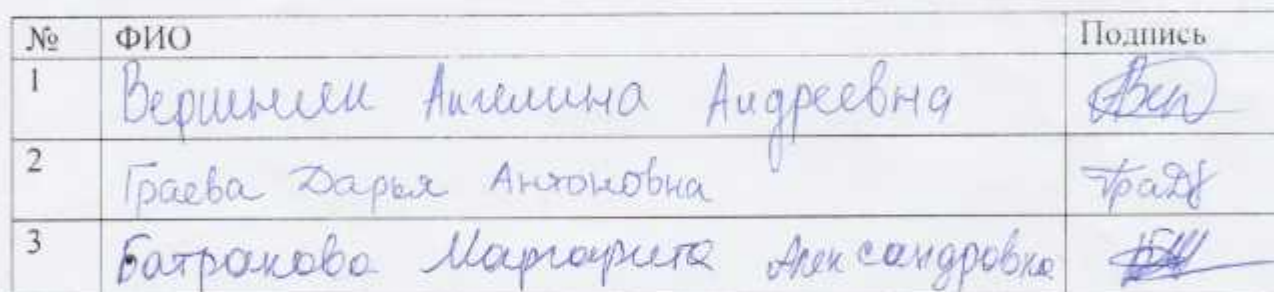 № ФИО Подпись
1 Вершинин Ангелина Андреевна
2 Граева Дарья Антоновна
3 Батракова Маргарита Александровна